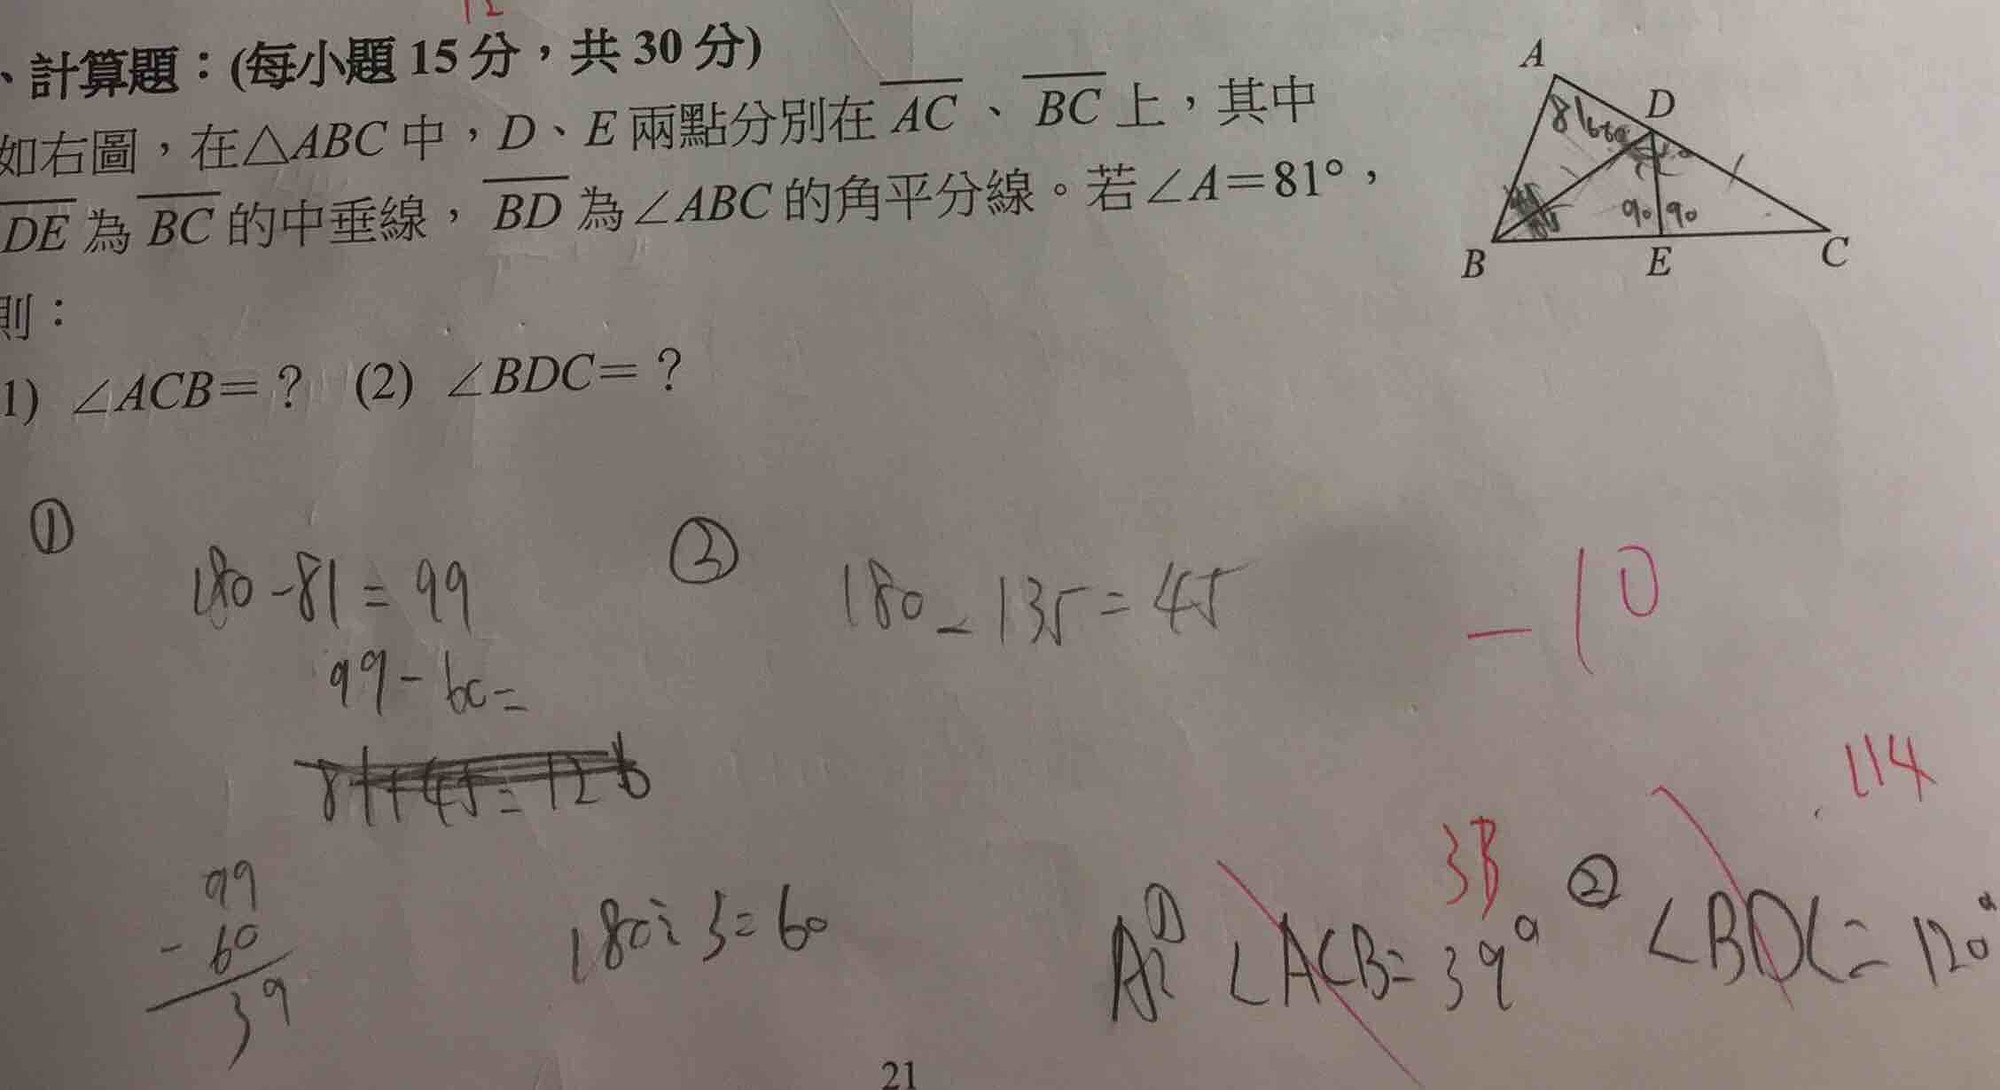 12
、計算題：(每小題 15 分，共 30 分)
如右圖，在△ABC 中，D、E 兩點分別在 AC 、 BC 上，其中
DE 為 BC 的中垂線， BD 為∠ABC 的角平分線。若∠A＝81°，
則：
1) ∠ACB＝？ (2) ∠BDC＝？
A
D
81
90 90
B
E
C
①
180-81=99
99-60=
81+45=126
99
-60
39
180÷3=60
②
180-135=45
-10
33
114
A: ① ∠ACB=39° ② ∠BDC=120°
21